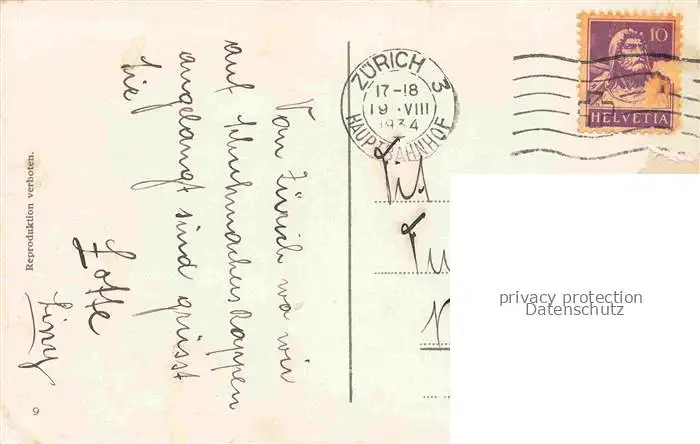 Von Zürich wo wir
auf Schuhmachers Rappen
angelangt sind grüsst
Sie
Lotte
Reproduktion verboten.
9
ZÜRICH 3
17-18
19.VIII
1934
HAUPTBAHNHOF
10
HELVETIA
privacy protection
Datenschutz